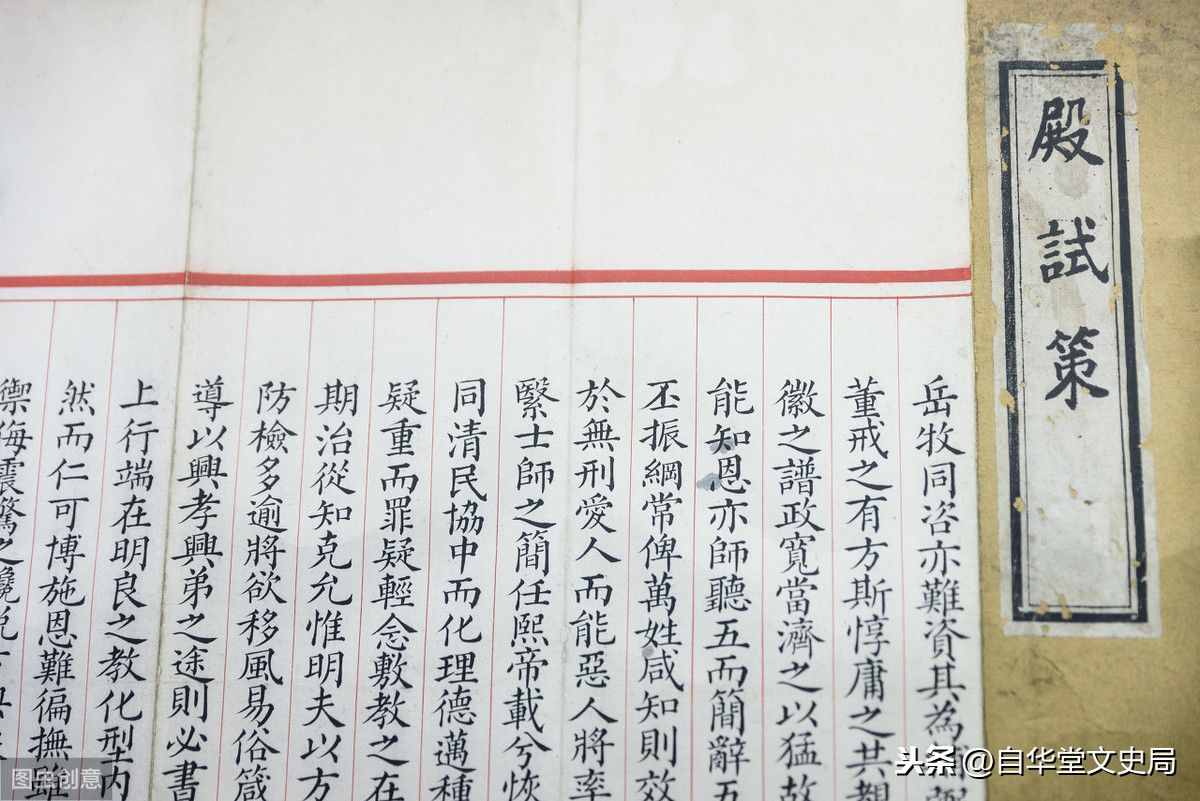 殿試策
岳牧同咨亦難資其為
董戒之有方斯惇庸之共
徽之譜政寬當濟之以猛故
能知恩亦師聽五而簡辭五
丕振綱常俾萬姓咸知則效
於無刑愛人而能惡人將率
繄士師之簡任熙帝載兮恢
同清民協中而化理德邁種
疑重而罪疑輕念敷教之在
期治從知克允惟明夫以方
防檢多逾將欲移風易俗箴
導以興孝興弟之途則必書
上行端在明良之教化型内
然而仁可博施恩難徧撫雖
禦侮震驚之讒說
图虫创意
头条@自华堂文史局